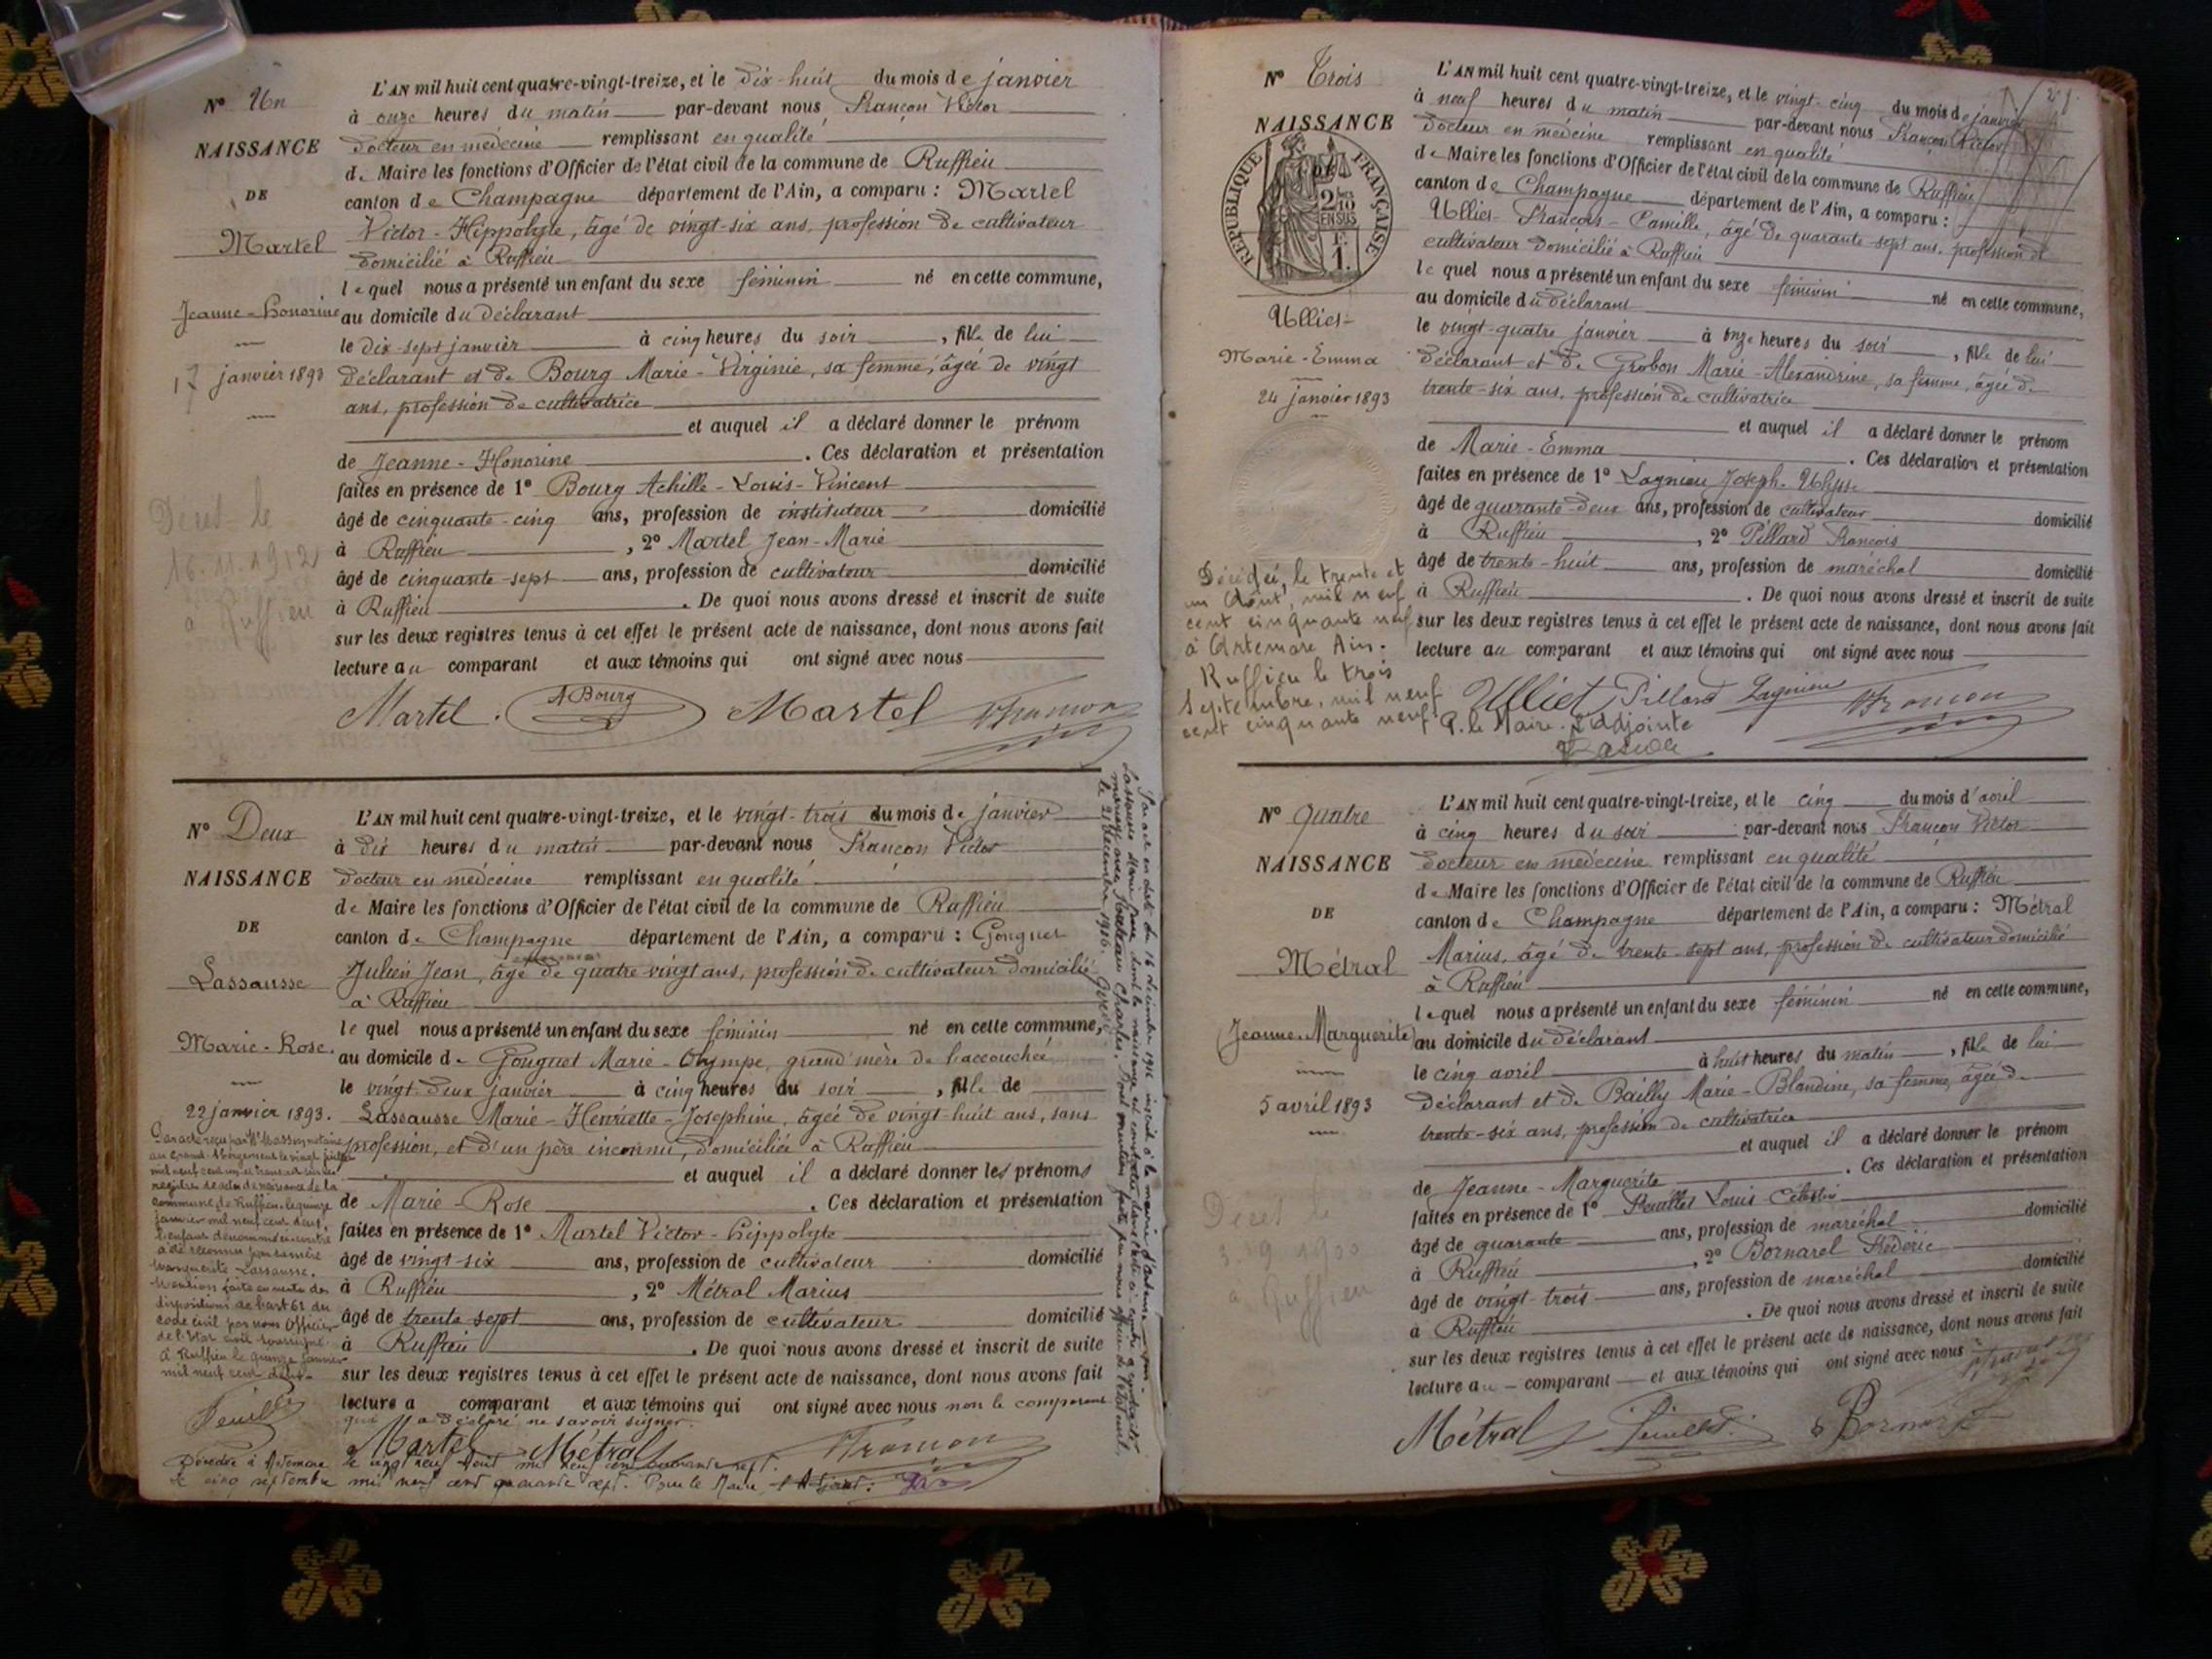 N° Un
NAISSANCE
DE
Martel
Jeanne-Honorine
17 janvier 1893
Deces le
16.11.1912
a Ruffieu
L'AN mil huit cent quatre-vingt-treize, et le dix-huit du mois de janvier
à onze heures du matin par-devant nous Françon Victor
docteur en médecine remplissant en qualité
de Maire les fonctions d'Officier de l'état civil de la commune de Ruffieu
canton de Champagne département de l'Ain, a comparu : Martel
Victor-Hippolyte, âgé de vingt-six ans, profession de cultivateur
domicilié à Ruffieu
lequel nous a présenté un enfant du sexe féminin né en cette commune,
au domicile du déclarant
le dix-sept janvier à cinq heures du soir, fille de lui
déclarant et de Bourg Marie-Virginie, sa femme, âgée de vingt
ans, profession de cultivatrice
et auquel il a déclaré donner le prénom
de Jeanne-Honorine. Ces déclaration et présentation
faites en présence de 1° Bourg Achille-Louis-Vincent
âgé de cinquante-cinq ans, profession de instituteur domicilié
à Ruffieu, 2° Martel Jean-Marie
âgé de cinquante-sept ans, profession de cultivateur domicilié
à Ruffieu. De quoi nous avons dressé et inscrit de suite
sur les deux registres tenus à cet effet le présent acte de naissance, dont nous avons fait
lecture au comparant et aux témoins qui ont signé avec nous
Martel. A Bourg Martel Françon
N° Deux
NAISSANCE
DE
Lassausse
Marie-Rose.
22 janvier 1893.
Par acte reçu par Me Masson notaire
au Grand-Abergement le vingt
mil neuf cent un et transcrit sur le
registre des actes de naissance de la
commune de Ruffieu le quinze
janvier mil neuf cent deux,
l'enfant dénommé ci-contre
a été reconnu par sa mère
Marguerite Lassausse.
Mention faite en vertu des
dispositions de l'art 62 du
code civil par nous Officier
de l'Etat civil soussigné.
A Ruffieu le quinze janvier
mil neuf cent deux.
L'AN mil huit cent quatre-vingt-treize, et le vingt-trois du mois de janvier
à dix heures du matin par-devant nous Françon Victor
docteur en médecine remplissant en qualité
de Maire les fonctions d'Officier de l'état civil de la commune de Ruffieu
canton de Champagne département de l'Ain, a comparu : Gonguet
Julien Jean, âgé de quatre-vingt ans, profession de cultivateur domicilié
à Ruffieu
lequel nous a présenté un enfant du sexe féminin né en cette commune,
au domicile de Gonguet Marie-Olympe, grand'mère de l'accouchée
le vingt-deux janvier à cinq heures du soir, fille de
Lassausse Marie-Henriette-Josephine, âgée de vingt-huit ans, sans
profession, et d'un père inconnu, domiciliée à Ruffieu
et auquel il a déclaré donner les prénoms
de Marie-Rose. Ces déclaration et présentation
faites en présence de 1° Martel Victor-Hippolyte
âgé de vingt-six ans, profession de cultivateur domicilié
à Ruffieu, 2° Métral Marius
âgé de trente sept ans, profession de cultivateur domicilié
à Ruffieu. De quoi nous avons dressé et inscrit de suite
sur les deux registres tenus à cet effet le présent acte de naissance, dont nous avons fait
lecture a comparant et aux témoins qui ont signé avec nous non le comparant
qui a déclaré ne savoir signer.
Martel Métral Françon
Décédée à Artemare le vingt neuf Aout mil neuf cent quarante sept.
le cinq septembre mil neuf cent quarante sept. Pour le Maire l'Adjoint.
N° Trois
NAISSANCE
DE
RÉPUBLIQUE FRANÇAISE
2/10
EN SUS
F.
1.
Ulliet
Marie-Emma
24 janvier 1893
Décédée, le trente et
un Août, mil neuf
cent cinquante neuf
à Artemare Ain.
Ruffieu le trois
Septembre, mil neuf
cent cinquante neuf
P. le Maire. l'adjointe
L'AN mil huit cent quatre-vingt-treize, et le vingt-cinq du mois de janvier
à neuf heures du matin par-devant nous Françon Victor
docteur en médecine remplissant en qualité
de Maire les fonctions d'Officier de l'état civil de la commune de Ruffieu
canton de Champagne département de l'Ain, a comparu :
Ulliet François-Camille, âgé de quarante-sept ans, profession de
cultivateur domicilié à Ruffieu
lequel nous a présenté un enfant du sexe féminin né en cette commune,
au domicile du déclarant
le vingt-quatre janvier à onze heures du soir, fille de lui
déclarant et de Grobon Marie-Alexandrine, sa femme, âgée de
trente-six ans, profession de cultivatrice
et auquel il a déclaré donner le prénom
de Marie-Emma. Ces déclaration et présentation
faites en présence de 1° Lagnieu Joseph-Ulysse
âgé de quarante-deux ans, profession de cultivateur domicilié
à Ruffieu, 2° Pillard François
âgé de trente-huit ans, profession de maréchal domicilié
à Ruffieu. De quoi nous avons dressé et inscrit de suite
sur les deux registres tenus à cet effet le présent acte de naissance, dont nous avons fait
lecture au comparant et aux témoins qui ont signé avec nous
Ulliet Pillard Lagnieu Françon
N° Quatre
NAISSANCE
DE
Métral
Jeanne-Marguerite
5 avril 1893
Deces le
a Ruffieu
L'AN mil huit cent quatre-vingt-treize, et le cinq du mois d'avril
à cinq heures du soir par-devant nous Françon Victor
docteur en médecine remplissant en qualité
de Maire les fonctions d'Officier de l'état civil de la commune de Ruffieu
canton de Champagne département de l'Ain, a comparu : Métral
Marius, âgé de trente-sept ans, profession de cultivateur domicilié
à Ruffieu
lequel nous a présenté un enfant du sexe féminin né en cette commune,
au domicile du déclarant
le cinq avril à huit heures du matin, fille de lui
déclarant et de Bailly Marie-Blandine, sa femme, âgée de
trente-six ans, profession de cultivatrice
et auquel il a déclaré donner le prénom
de Jeanne-Marguerite. Ces déclaration et présentation
faites en présence de 1° Louis Célestin
âgé de quarante ans, profession de maréchal domicilié
à Ruffieu, 2° Bornarel Fréderic
âgé de vingt-trois ans, profession de maréchal domicilié
à Ruffieu. De quoi nous avons dressé et inscrit de suite
sur les deux registres tenus à cet effet le présent acte de naissance, dont nous avons fait
lecture au comparant et aux témoins qui ont signé avec nous
Métral